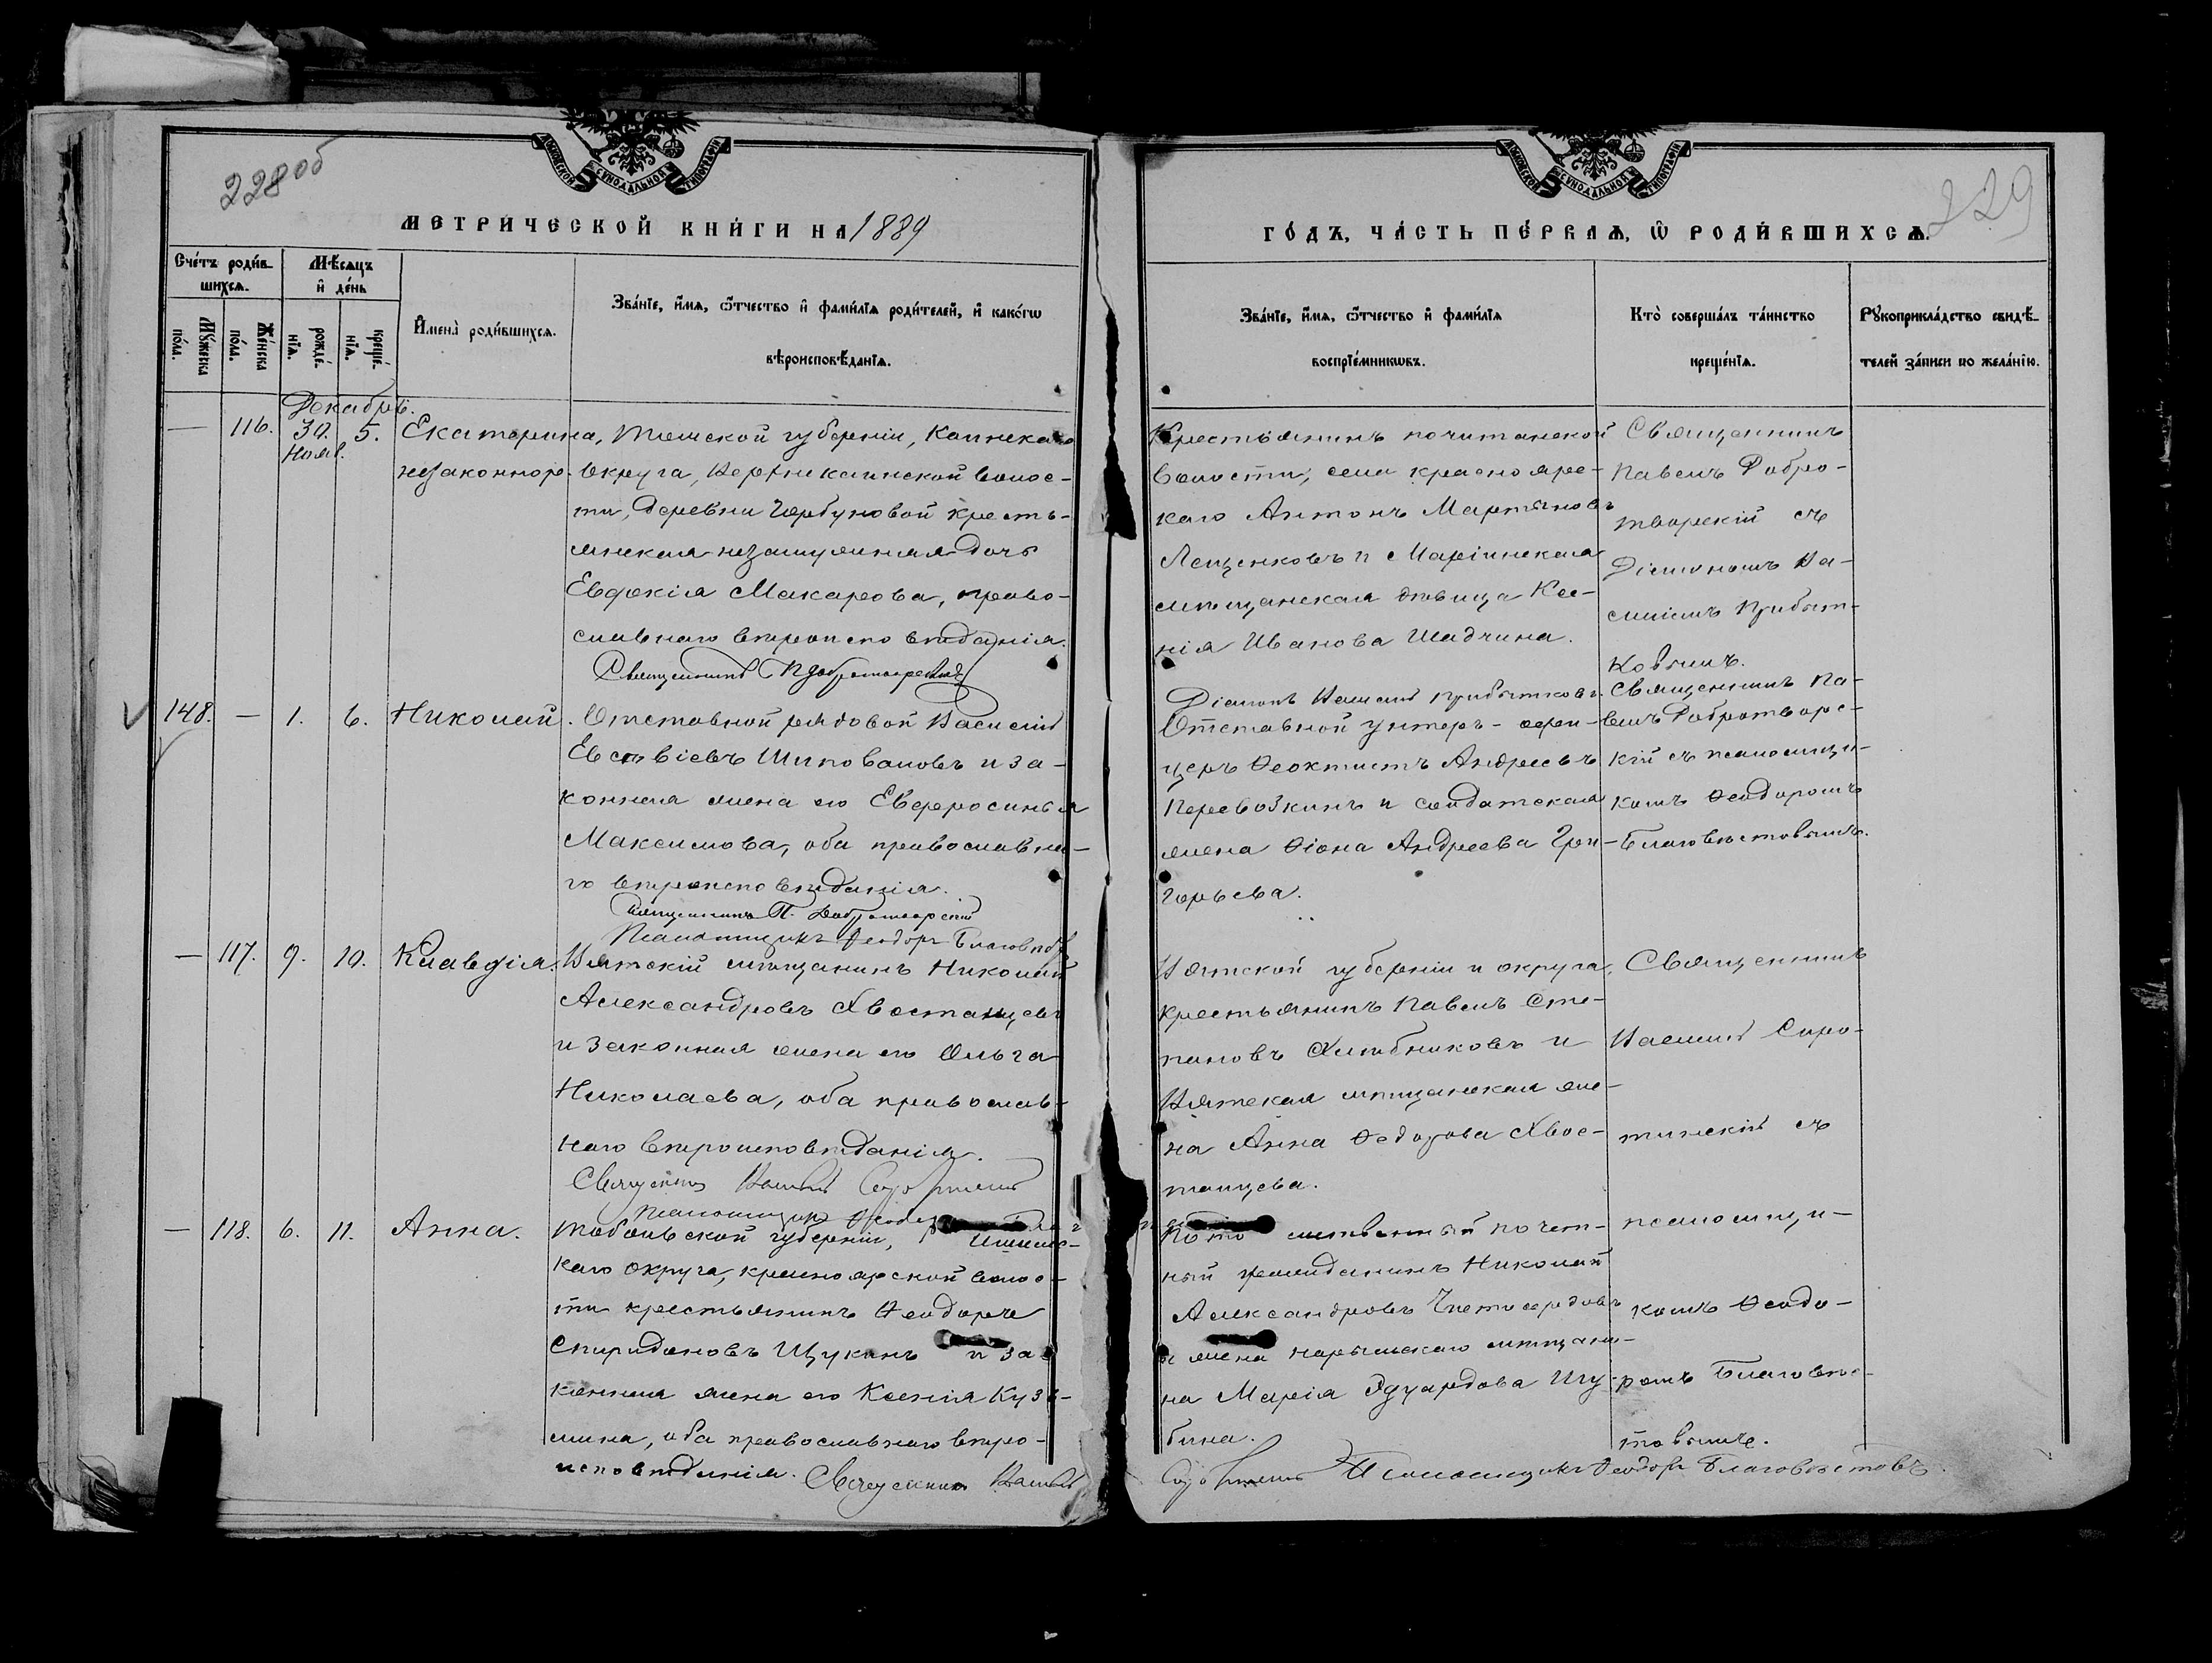 228об
229
МОСКОВСКОЙ СѴНОДАЛЬНОЙ ТИПОГРАФІИ
МОСКОВСКОЙ СѴНОДАЛЬНОЙ ТИПОГРАФІИ
МЕТРИ́ЧЕСКОЙ КНИ́ГИ НА 1889
ГО́ДЪ, ЧА́СТЬ ПЕ́РВАѦ, Ѡ҆ РОДИ́ВШИХСѦ.
Сче́тъ роди́в-
шихсѧ.
Мꙋ́жеска
по́ла.
Же́нска
по́ла.
Мѣ́сѧцъ
и҆ де́нь
рожде́-
нїѧ.
креще́-
нїѧ.
И҆мена̀ роди́вшихсѧ.
Зва́нїе, и҆́мѧ, ѻ҆́тчество и҆ фами́лїѧ роди́телей, и҆ како́гѡ
вѣроисповѣ́данїѧ.
Зва́нїе, и҆́мѧ, ѻ҆́тчество и҆ фами́лїѧ
воспрїе́мникѡвъ.
Кто̀ соверша́лъ та́инство
креще́нїѧ.
Рꙋкоприкла́дство свидѣ́-
телей за́писи по жела́нїю.
Декабрь.
— 116. 30. 5.
Нояб.
Екатерина,
незаконнор.
Томской губерніи, Каинскаго
округа, Верхнекаинской волос-
ти, деревни Горбуновой кресть-
янская незамужняя дочь
Евдокія Макарова, право-
славнаго вѣроисповѣданія.
Священникъ П Добротворскій
Крестьянинъ почитанской
волости, села красноярс-
каго Антонъ Мартыновъ
Лещенковъ и Маріинская
мѣщанская дѣвица Ксе-
нія Иванова Шадрина.
Діаконъ Василій Прибытковъ.
Священникъ
Павелъ Добро-
творскій съ
Діакономъ Ва-
силіемъ Прибыт-
ковымъ.
148. — 1. 6. Николай.
Отставной рядовой Василій
Евстѳіевъ Шиповаловъ и за-
конная жена его Евфросинья
Максимова, оба православна-
го вѣроисповѣданія.
Священникъ П. Добротворскій
Псаломщикъ Ѳеодоръ Благовѣст
Отставной унтеръ-офи-
церъ Ѳеоктистъ Андреевъ
Перевозкинъ и солдатская
жена Ѳіона Андреева Гри-
горьева.
Священникъ Па-
велъ Добротворс-
кій съ псаломщи-
комъ Ѳеодоромъ
Благовѣстовымъ.
— 117. 9. 10. Клавдія.
Вятскій мѣщанинъ Николай
Александровъ Хвостанцевъ
и законная жена его Ольга
Николаева, оба православ-
наго вѣроисповѣданія.
Священникъ Василій
Псаломщикъ Ѳеодоръ
Вятской губерніи и округа,
крестьянинъ Павелъ Сте-
пановъ Хлѣбниковъ и
Вятская мѣщанская же-
на Анна Ѳедорова Хвос-
танцева.
Священникъ
Василій Сиро-
тинскій съ
псаломщи-
комъ Ѳеодо-
ромъ Благовѣс-
товымъ.
— 118. 6. 11. Анна.
Тобольской губерніи, Ишимс-
каго округа, красноярской волос-
ти крестьянинъ Ѳеодоръ
Спиридоновъ Щукинъ и за-
конная жена его Ксенія Кузь-
мина, оба православнаго вѣро-
исповѣданія. Священникъ Василій
Потомственный почет-
ный гражданинъ Николай
Александровъ Чистосердовъ
и жена нарымскаго мѣщани-
на Марія Эдуардова Шу-
бина.
Псаломщикъ Ѳеодоръ Благовѣстовъ.